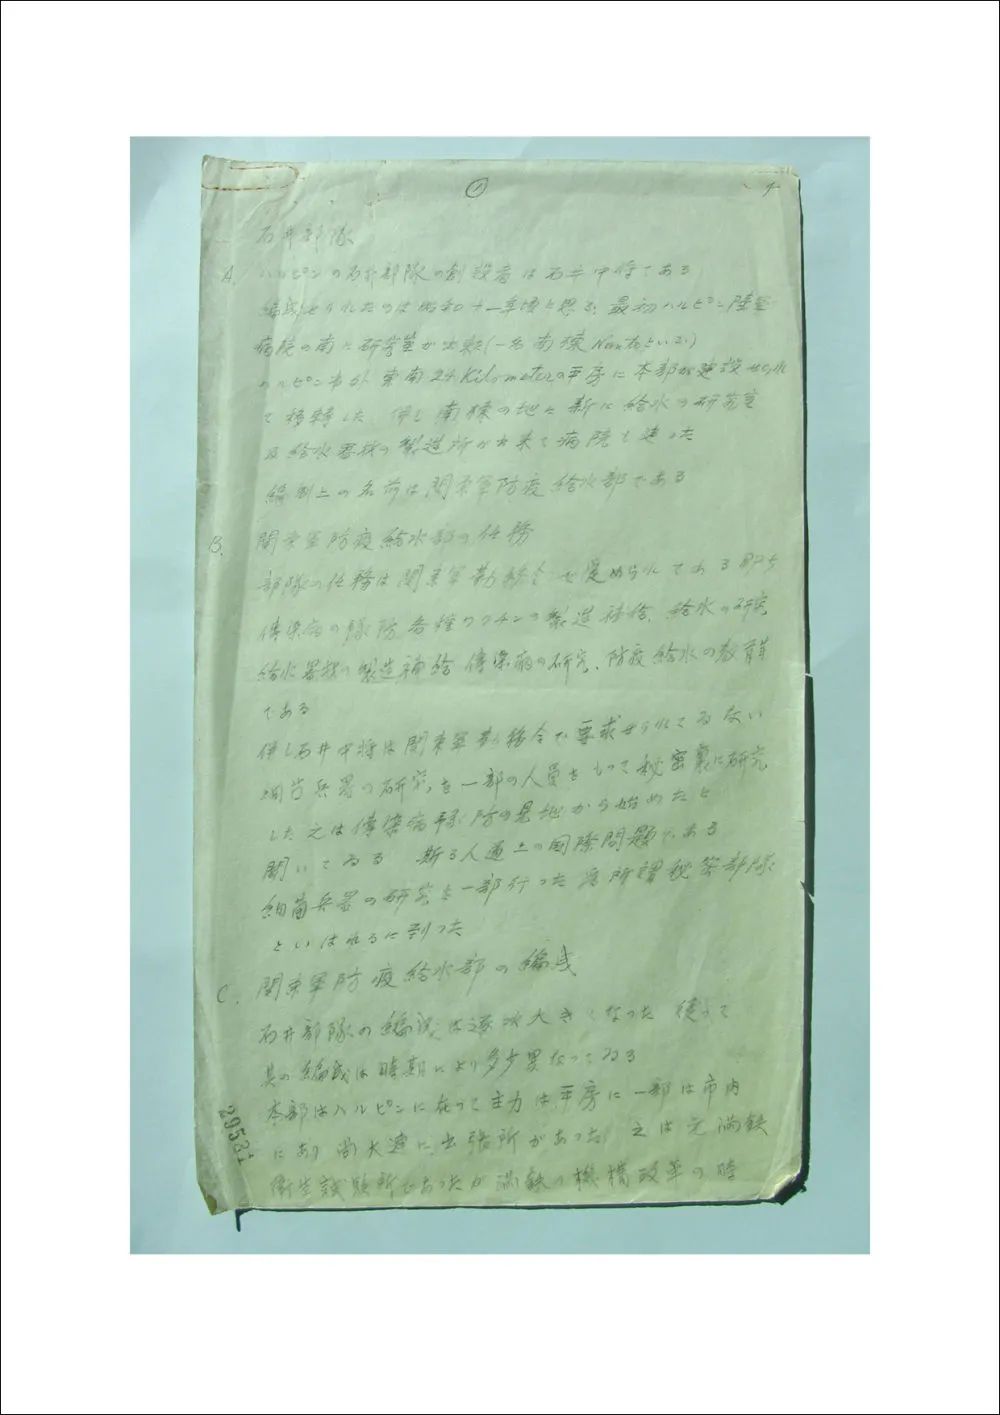 ①
石井部隊
A. ハルピンの石井部隊の創設者は石井中将である
編成せられたのは昭和十一年頃と思ふ、最初ハルピン陸軍
病院の南に研究室が出来(一名南棟 といふ)
ハルピン市外東南24Kilometerの平房に本部が建設せられ
て移転した 併し南棟の地に新に給水の研究室
及給水器材の製造所が出来て病院も建った
編制上の名前は関東軍防疫給水部である
B. 関東軍防疫給水部の任務
部隊の任務は関東軍勤務令で定められてある 即ち
傳染病の豫防 各種ワクチンの製造補給、給水の研究
給水器材の製造補給 傳染病の研究、防疫給水の教育等
である
併し石井中将は関東軍勤務令で要求せられてゐない
細菌兵器の研究を一部の人員をもって秘密裏に研究
した 之は傳染病豫防の見地から始めたと
聞いてゐる 斯る人道上の国際問題である
細菌兵器の研究を一部行った為所謂秘密部隊
といはれるに到った
C. 関東軍防疫給水部の編成
石井部隊の編成は逐次大きくなった 従って
其の編成は時期により多少異なってゐる
本部はハルピンに在って主力は平房に一部は市内
にあり尚大連に出張所があった 之は元満鉄
衛生試験所であったが満鉄の機構改革の時
29531